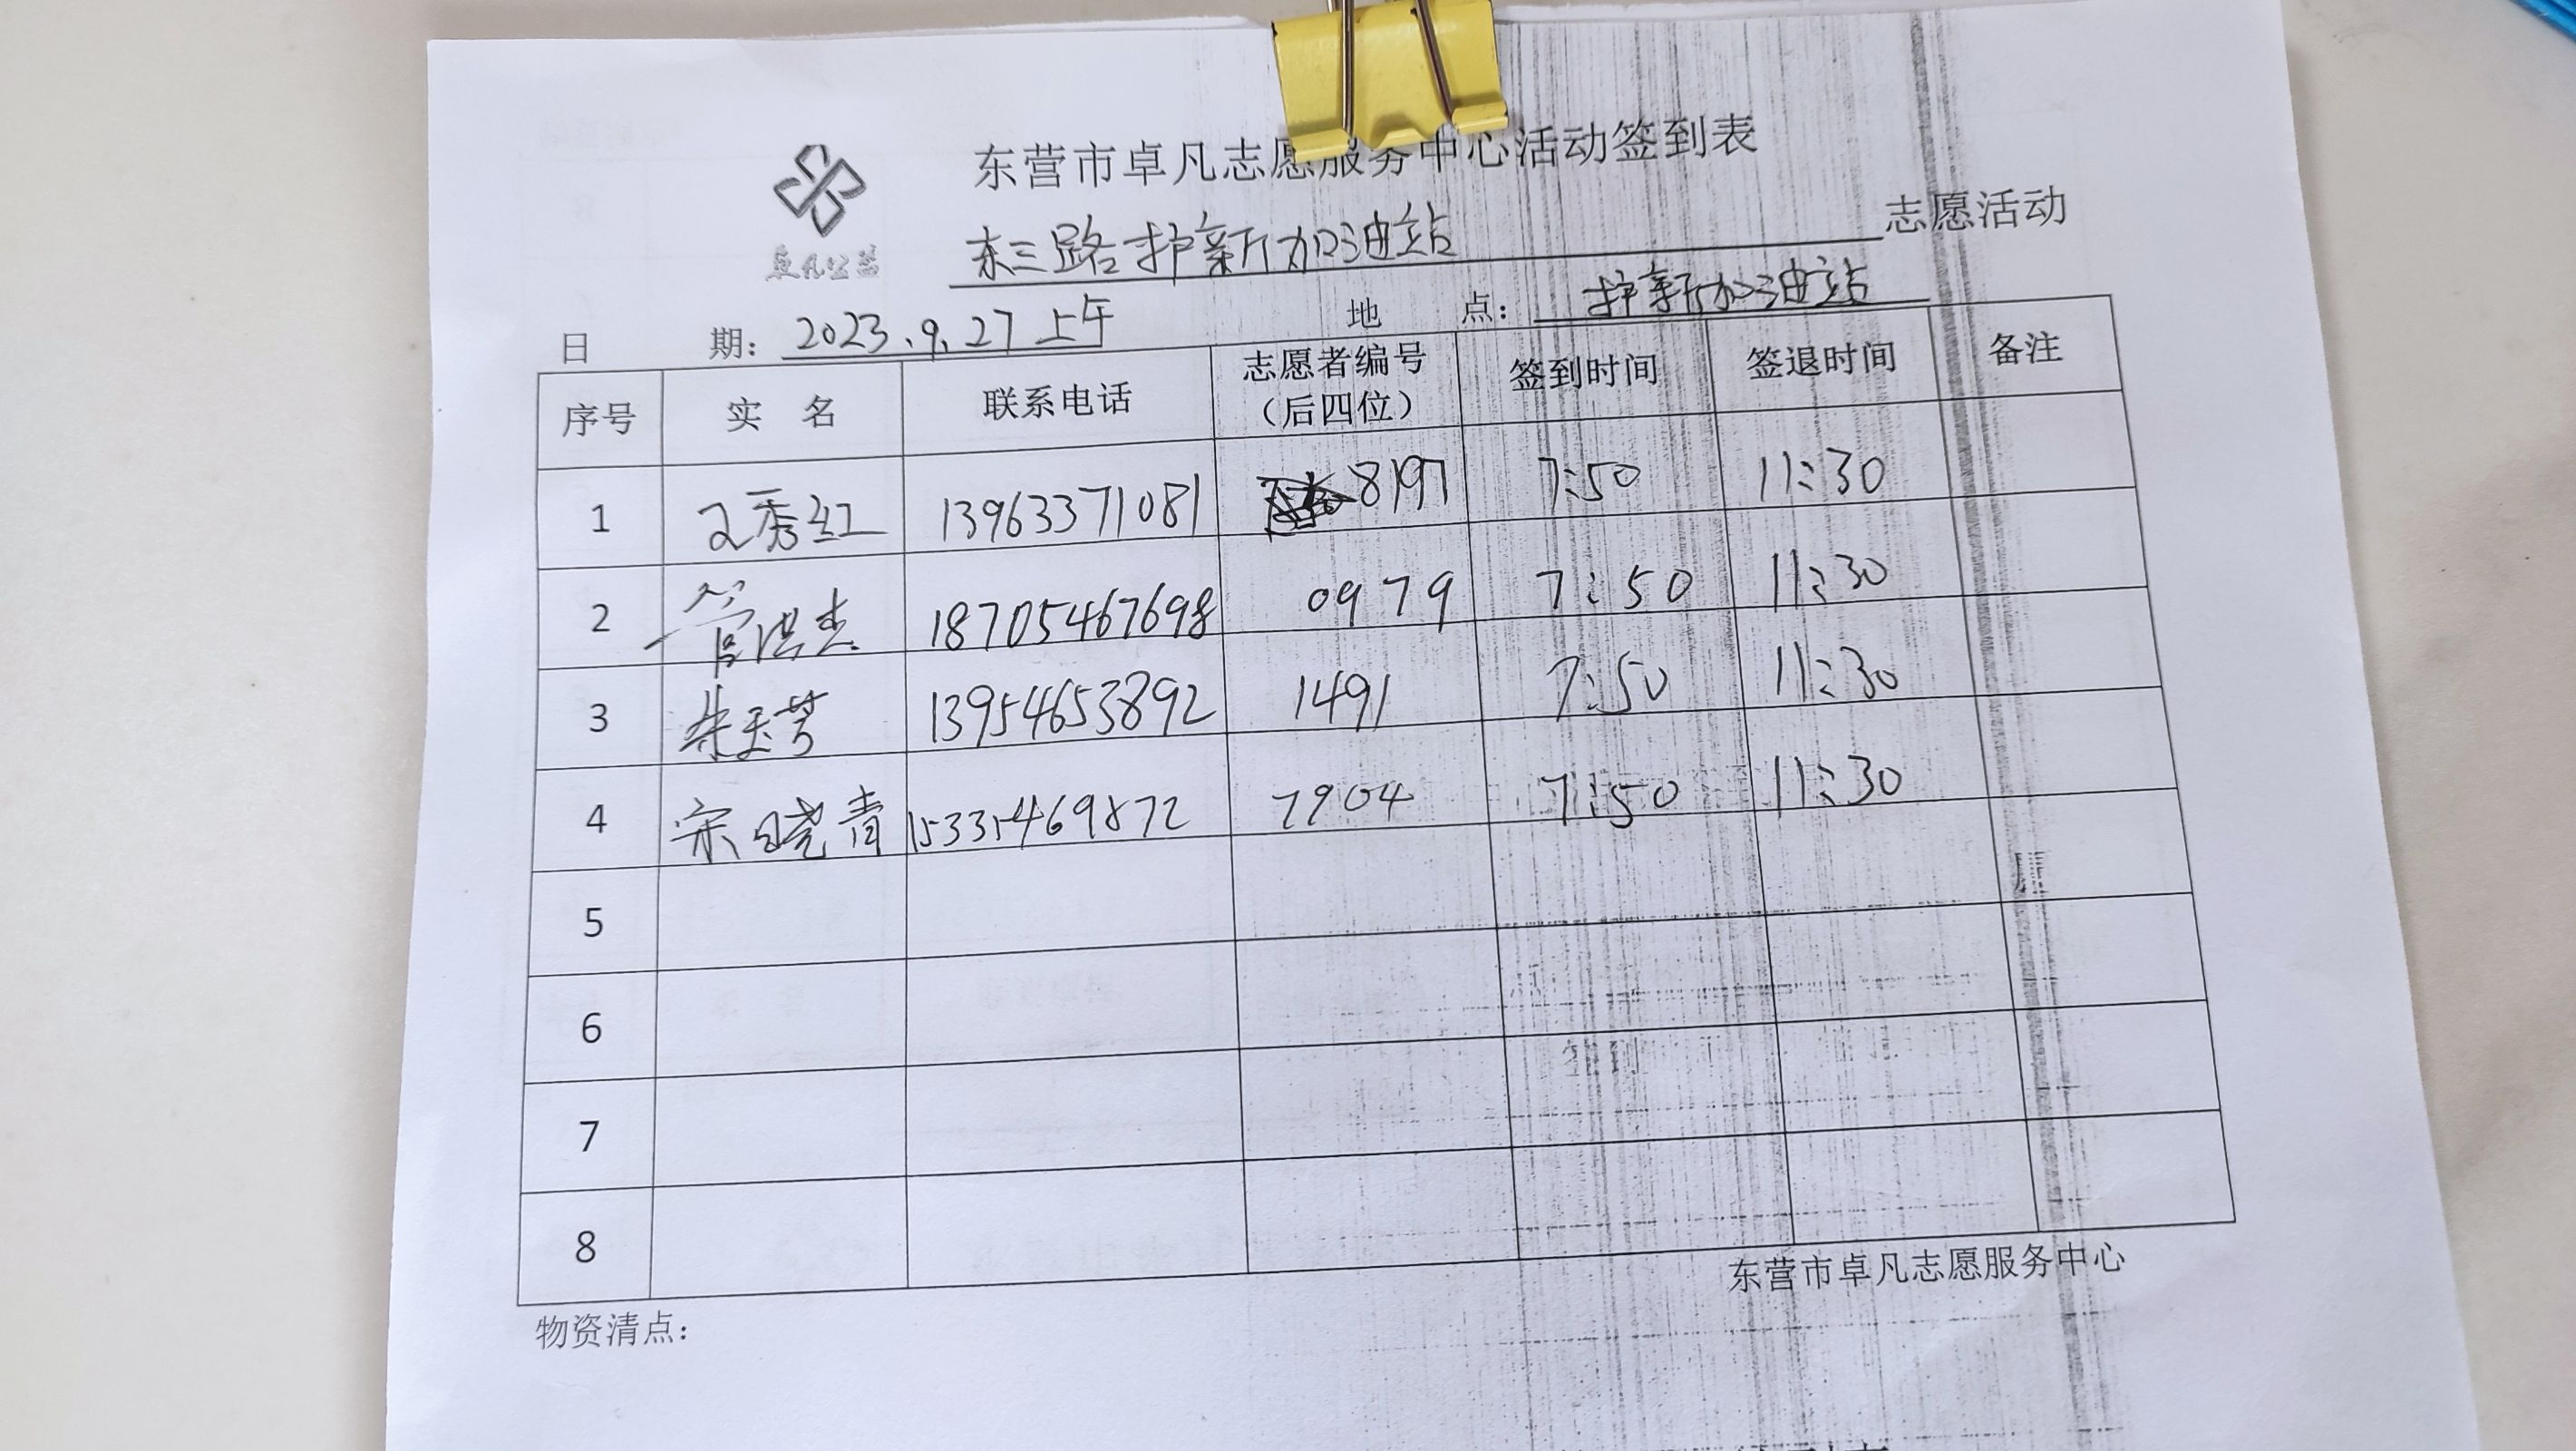 东营市卓凡志愿服务中心活动签到表
卓凡公益
东三路护新加油站 志愿活动
日 期： 2023.9.27上午 地 点： 护新加油站
序号 实 名 联系电话 志愿者编号（后四位） 签到时间 签退时间 备注
1 王秀红 13963371081 8197 7:50 11:30
2 管洪杰 18705467698 0979 7:50 11:30
3 朱玉芳 13954653892 1491 7:50 11:30
4 宋晓青 15335469872 7904 7:50 11:30
5
6
7
8
东营市卓凡志愿服务中心
物资清点：